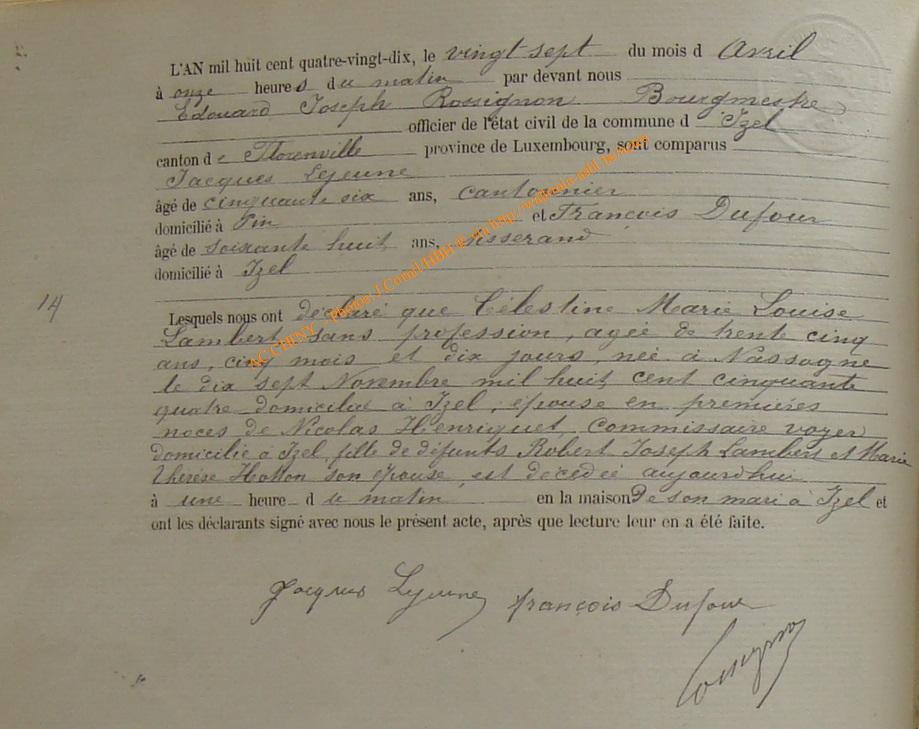 L'AN mil huit cent quatre-vingt-dix, le vingt sept du mois d Avril
à onze heures du matin par devant nous
Edouard Joseph Rossignon Bourgmestre
officier de l'état civil de la commune d Izel
canton de Florenville province de Luxembourg, sont comparus
Jacques Lejeune
âgé de cinquante six ans, cantonnier
domicilié à Pin et François Dufour
âgé de soixante huit ans, tisserand
domicilié à Izel
14
Lesquels nous ont déclaré que Célestine Marie Louise
Lambert sans profession, agée de trente cinq
ans, cinq mois et dix jours, née à Nassogne
le dix sept Novembre mil huit cent cinquante
quatre domiciliée à Izel, épouse en premières
noces de Nicolas Henriquet, Commissaire voyer
domicilié à Izel, fille de défunts Robert Joseph Lambert et Marie
Thérèse Hotton son épouse, est décédée aujourd'hui
à une heure du matin en la maison de son mari à Izel et
ont les déclarants signé avec nous le présent acte, après que lecture leur en a été faite.
Jacques Lejeune François Dufour
Rossignon